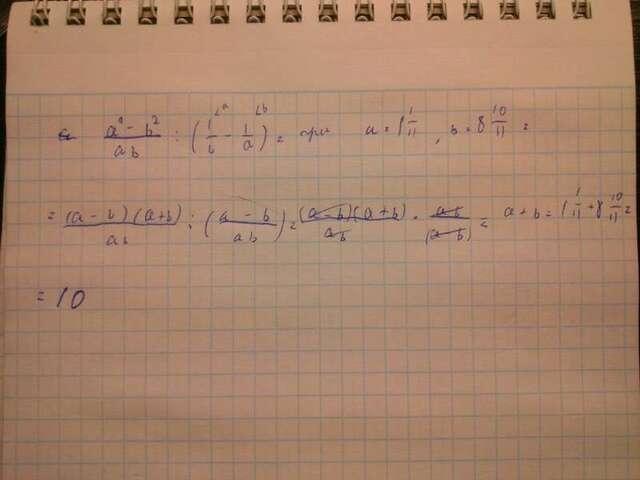 (a² - b²)/(ab) : (1/b - 1/a) = при a = 1 1/11, b = 8 10/11 =
= ((a - b)(a+b))/(ab) : ((a - b)/(ab)) = ((a-b)(a+b))/(ab) · (ab)/((a-b)) = a+b = 1 1/11 + 8 10/11 =
= 10